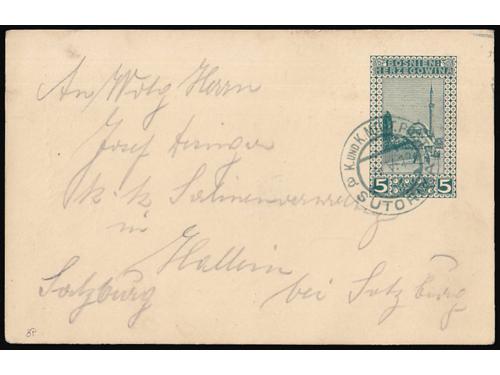 BOSNIEN-
HERZEGOWINA
5 5
K. UND K. MILIT. POST
SUTORINA
An Wolg Herrn
Josef
k. k. Salinenverwaltg
in
Hallein
Salzburg bei Salzburg